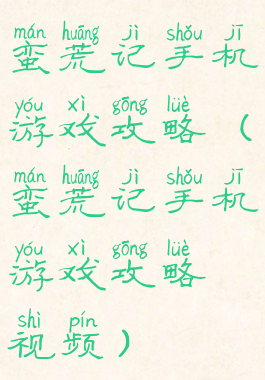 mán huāng jì shǒu jī
蛮荒记手机
yóu xì gōng lüè
游戏攻略（
mán huāng jì shǒu jī
蛮荒记手机
yóu xì gōng lüè
游戏攻略
shì pín
视频）